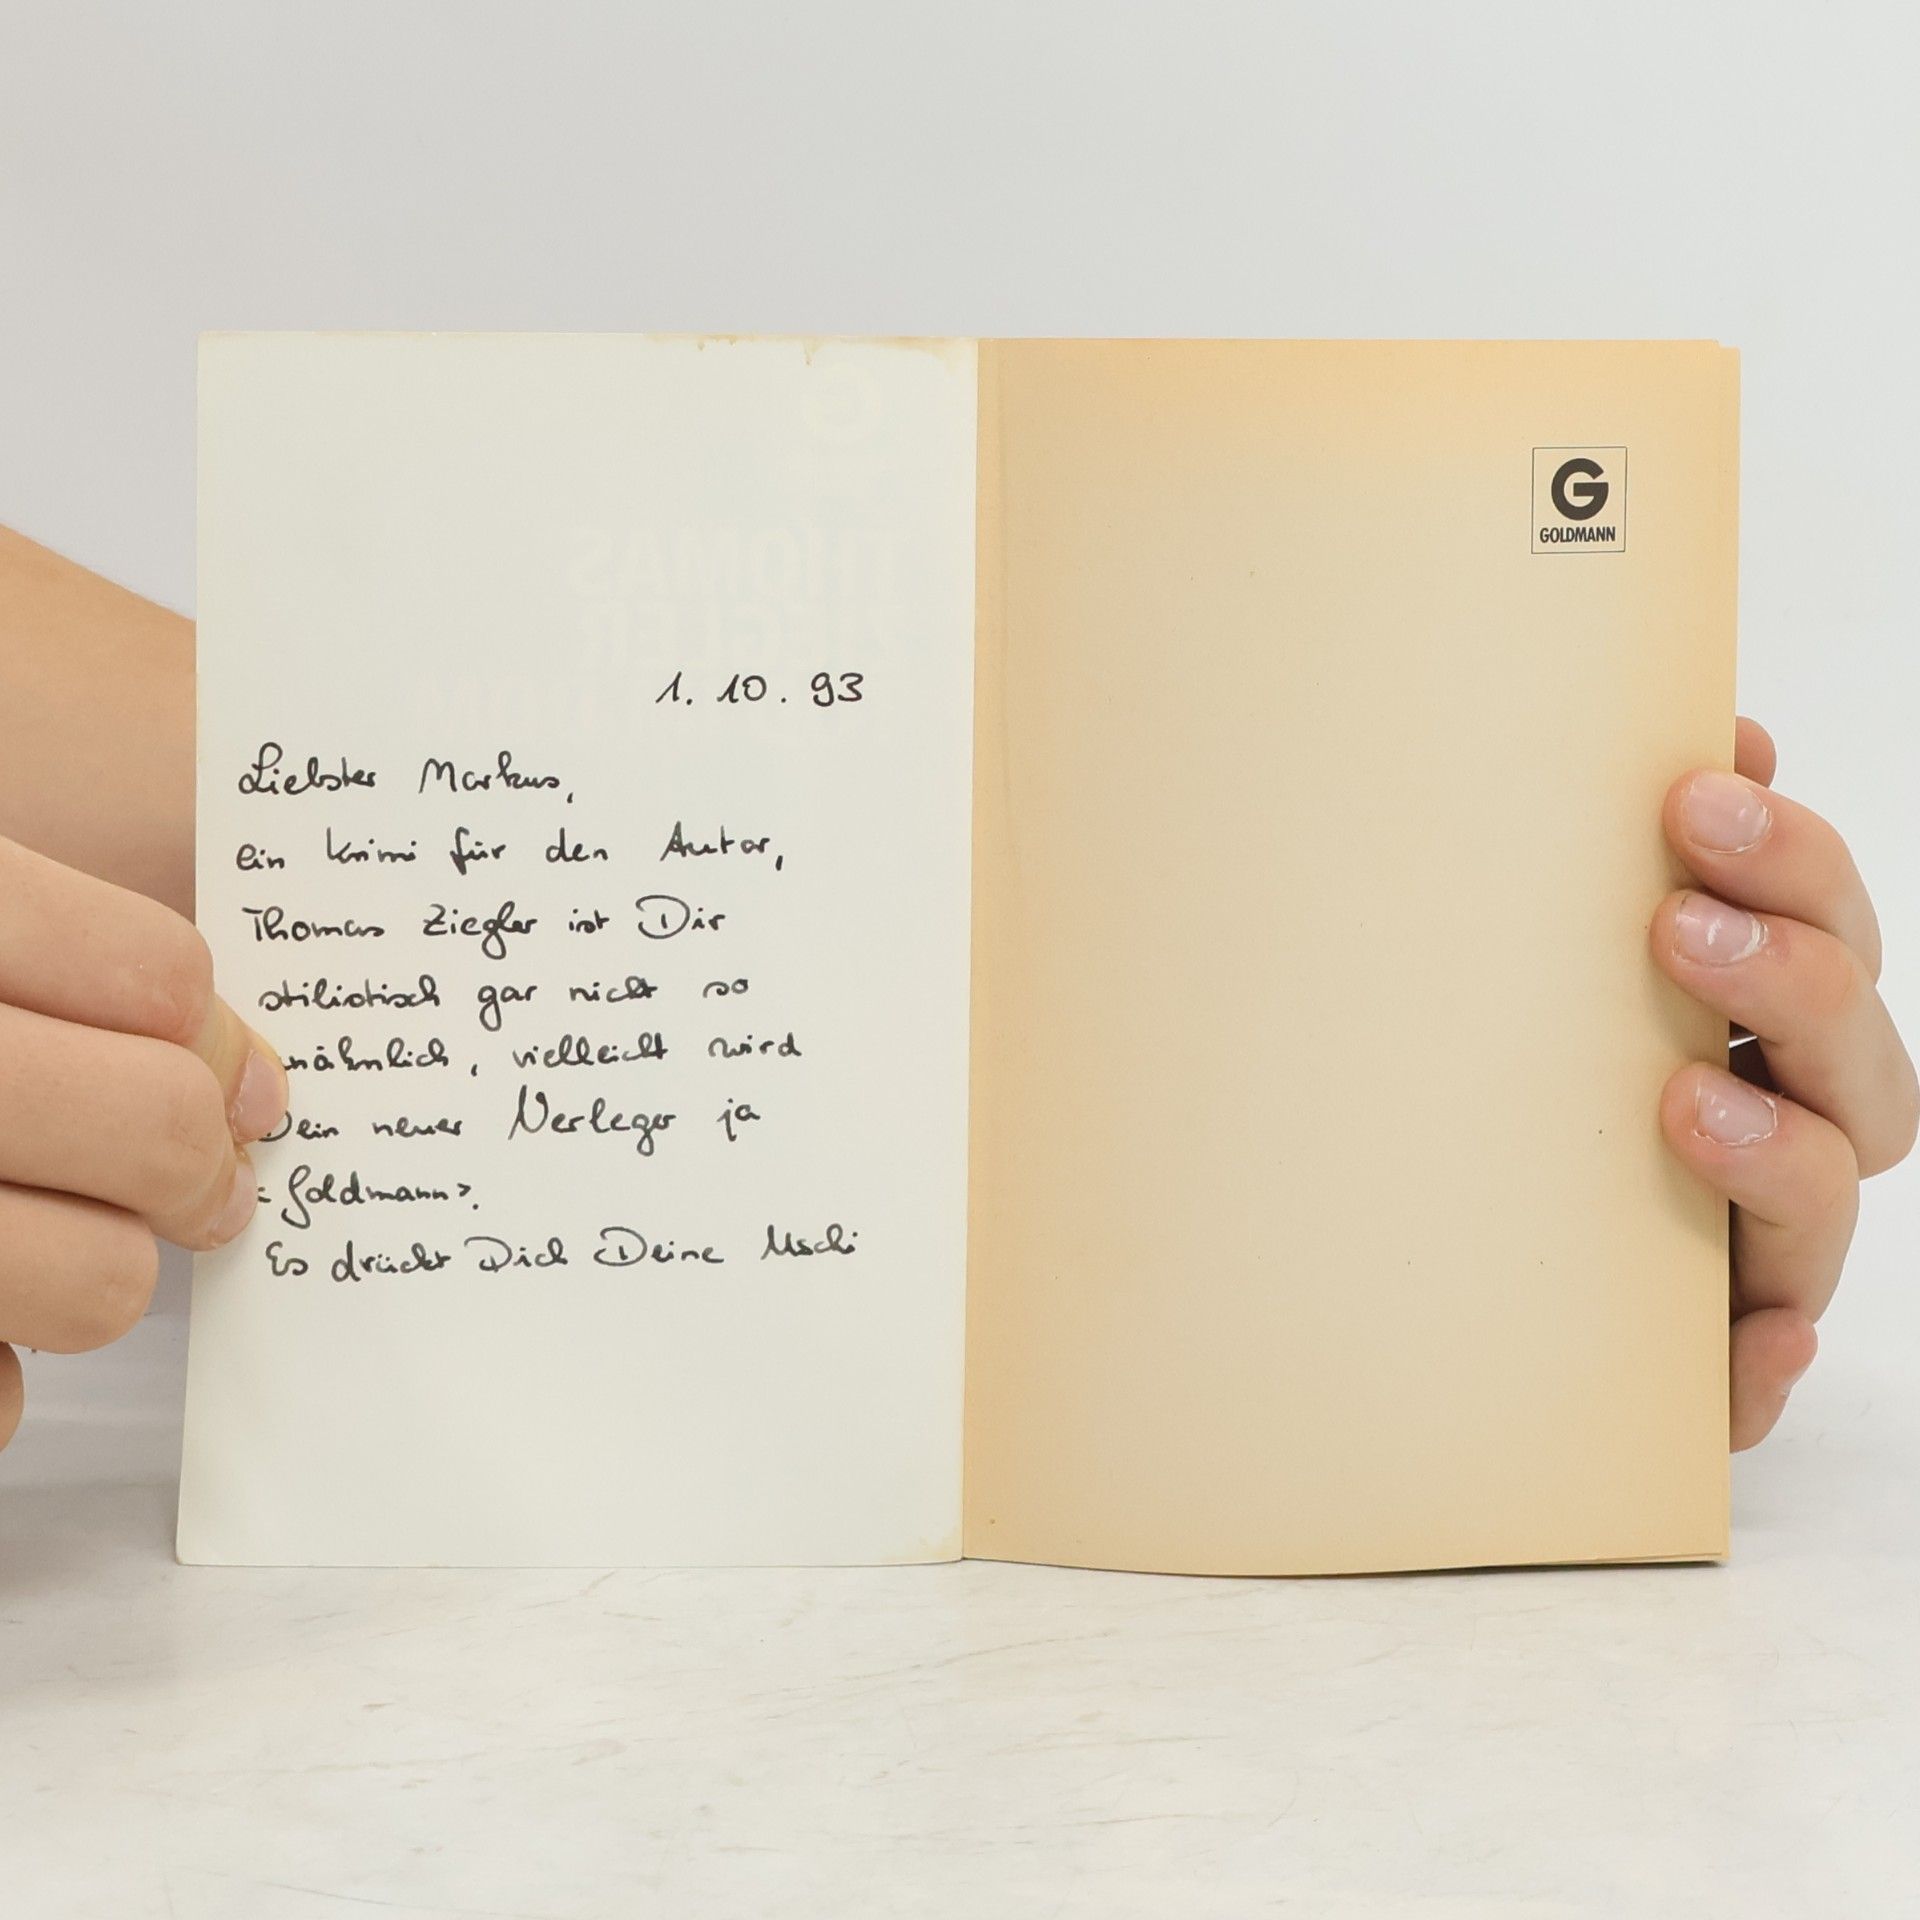 1. 10. 93
Liebster Markus,
ein Krimi für den Autor,
Thomas Ziegler ist Dir
stilistisch gar nicht so
unähnlich, vielleicht wird
Dein neuer Verleger ja
<Goldmann>.
Es drückt Dich Deine Uschi
G
GOLDMANN